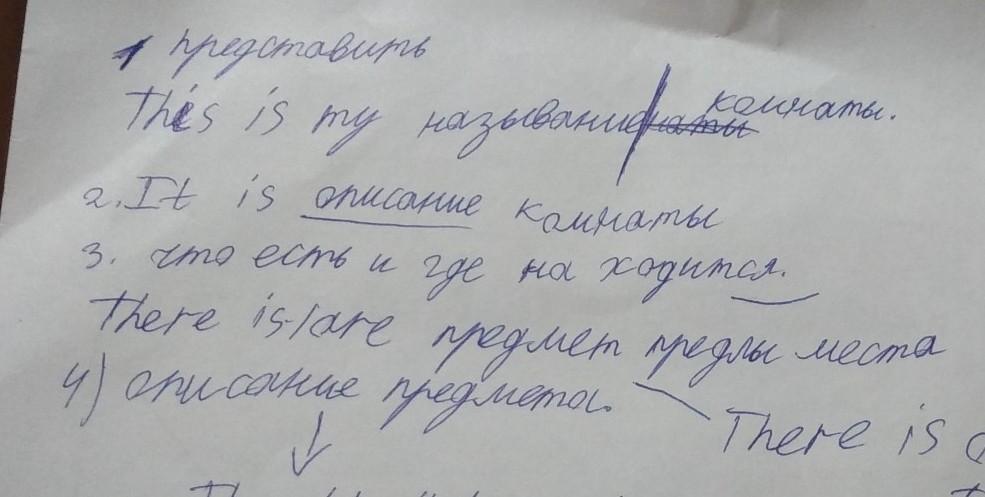 1 представить
This is my название комнаты.
2. It is описание комнаты
3. что есть и где на ходится.
There is/are предмет предлы места
4) описание предмета.
There is